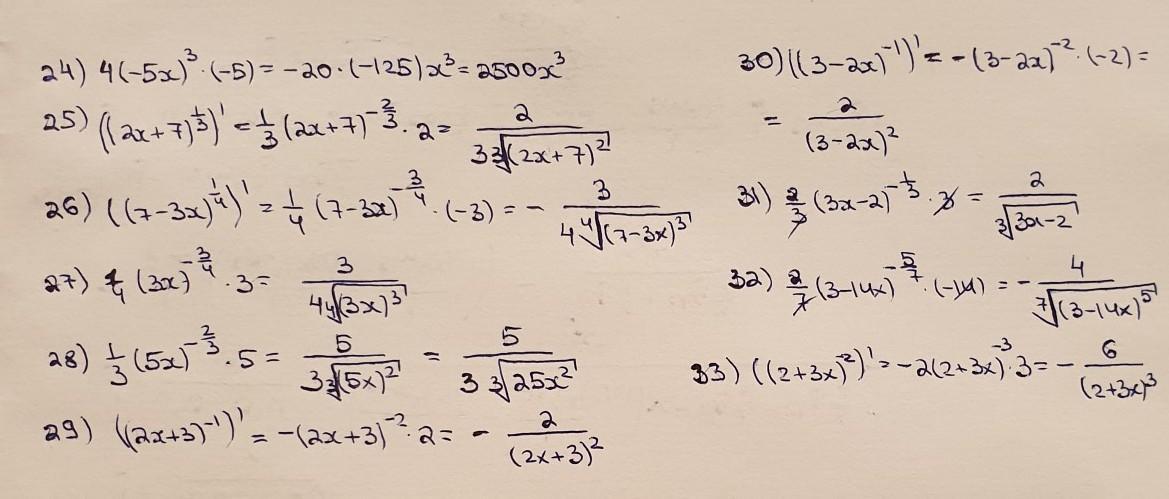 24) 4(-5x)³·(-5) = -20·(-125)x³ = 2500x³
25) ((2x+7)^{1/3})' = 1/3 (2x+7)^{-2/3}·2 = 2/(3∛((2x+7)²))
26) ((7-3x)^{1/4})' = 1/4 (7-3x)^{-3/4}·(-3) = - 3/(4∜((7-3x)³))
27) 1/4 (3x)^{-3/4}·3 = 3/(4∜((3x)³))
28) 1/3 (5x)^{-2/3}·5 = 5/(3∛((5x)²)) = 5/(3∛(25x²))
29) ((2x+3)⁻¹)' = -(2x+3)⁻²·2 = - 2/(2x+3)²
30) ((3-2x)⁻¹)' = -(3-2x)⁻²·(-2) =
= 2/(3-2x)²
31) 2/3 (3x-2)^{-1/3}·3 = 2/∛(3x-2)
32) 2/7 (3-14x)^{-5/7}·(-14) = - 4/⁷√((3-14x)⁵)
33) ((2+3x)⁻²)' = -2(2+3x)⁻³·3 = - 6/(2+3x)³